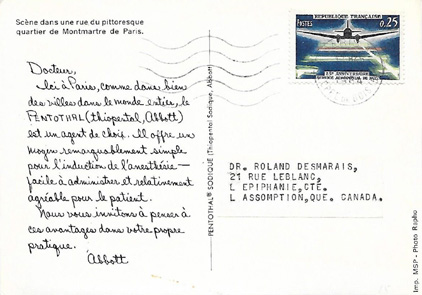 Scène dans une rue du pittoresque
quartier de Montmartre de Paris.
Docteur,
Ici à Paris, comme dans bien
des villes dans le monde entier, le
PENTOTHAL (thiopental, Abbott)
est un agent de choix. Il offre un
moyen remarquablement simple
pour l'induction de l'anesthésie—
facile à administrer et relativement
agréable pour le patient.
Nous vous invitons à penser à
ces avantages dans votre propre
pratique.
Abbott
PENTOTHAL SODIQUE (Thiopental Sodique, Abbott)
REPUBLIQUE FRANÇAISE
POSTES
0,25
25e ANNIVERSAIRE
DR. ROLAND DESMARAIS,
21 RUE LEBLANC,
L EPIPHANIE, CTE.
L ASSOMPTION, QUE. CANADA.
Imp. MSP - Photo Rapho